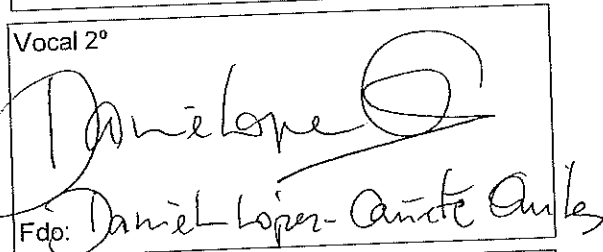 Vocal 2º
Daniel Lope
Fdo: Daniel López-Cañete Quiles